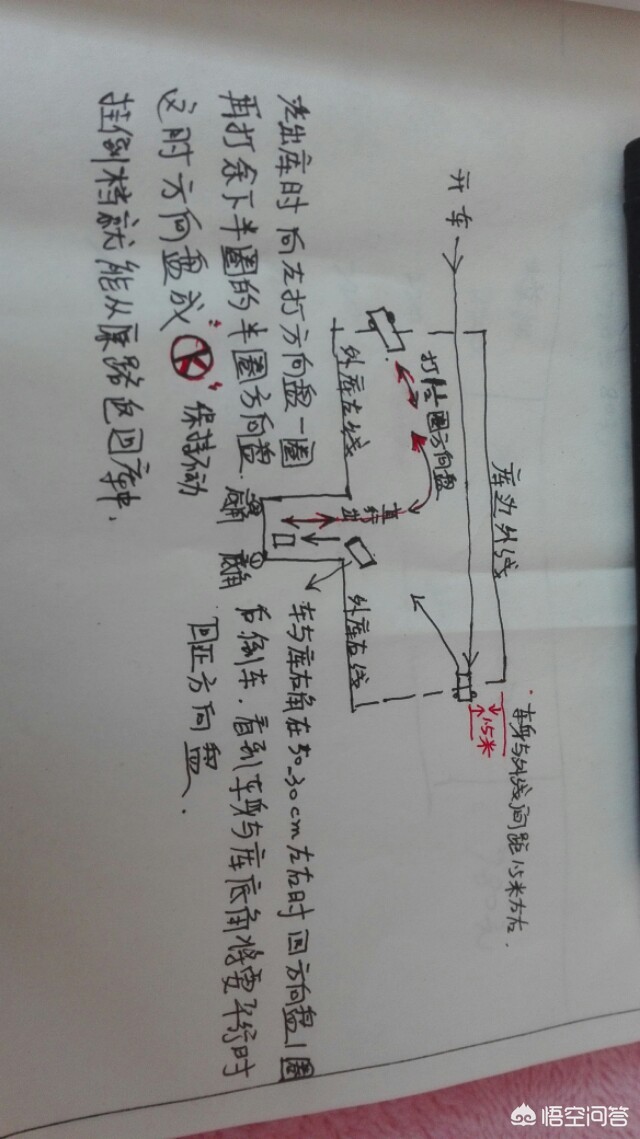 开车
库边外线
车身与外线间距1.5米左右.
1.5米
打1圈方向盘
外库左线
外库右线
直线
出
底角
底角
车与库左角在50-30cm左右时回方向盘1圈
后倒车.看到车身与库底角将要平行时
回正方向盘.
出库时向左打方向盘一圈
再打余下半圈的半圈方向盘.
这时方向盘成" "保持不动
挂倒档就能从原路返回库中.
悟空问答